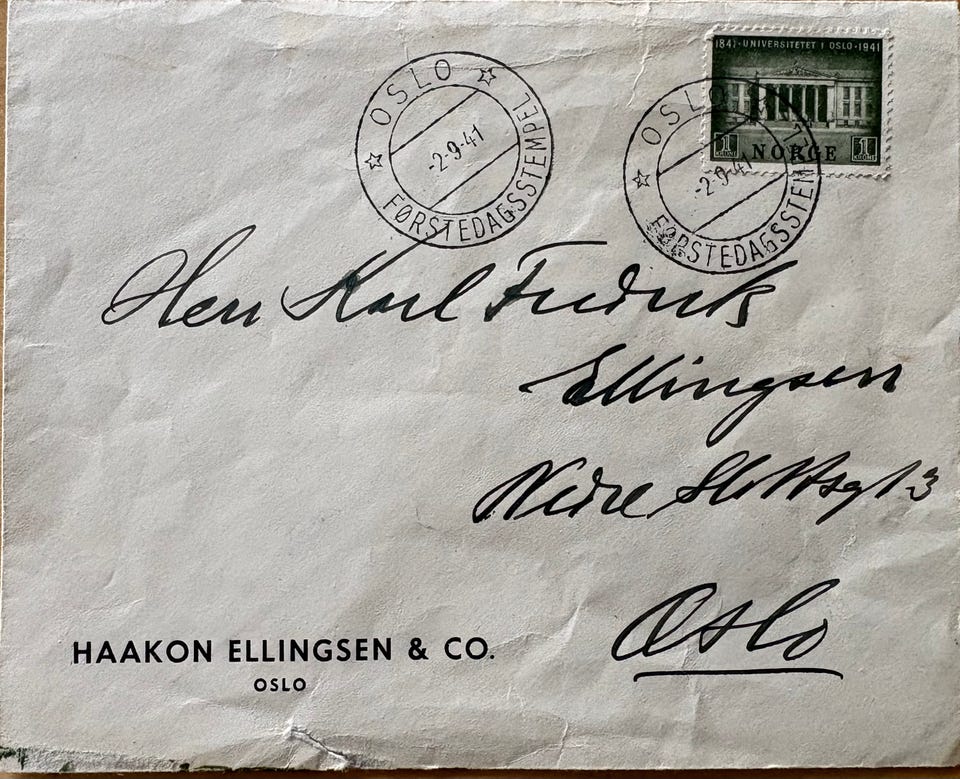 1841 · UNIVERSITETET I OSLO · 1941
1 KRONE NORGE 1 KRONE
OSLO
-2-9-41
FØRSTEDAGSSTEMPEL
OSLO
-2-9-41
FØRSTEDAGSSTEMPEL
Herr Karl Fredrik
Ellingsen
Nedre Slottsgt 3
Oslo
HAAKON ELLINGSEN & CO.
OSLO